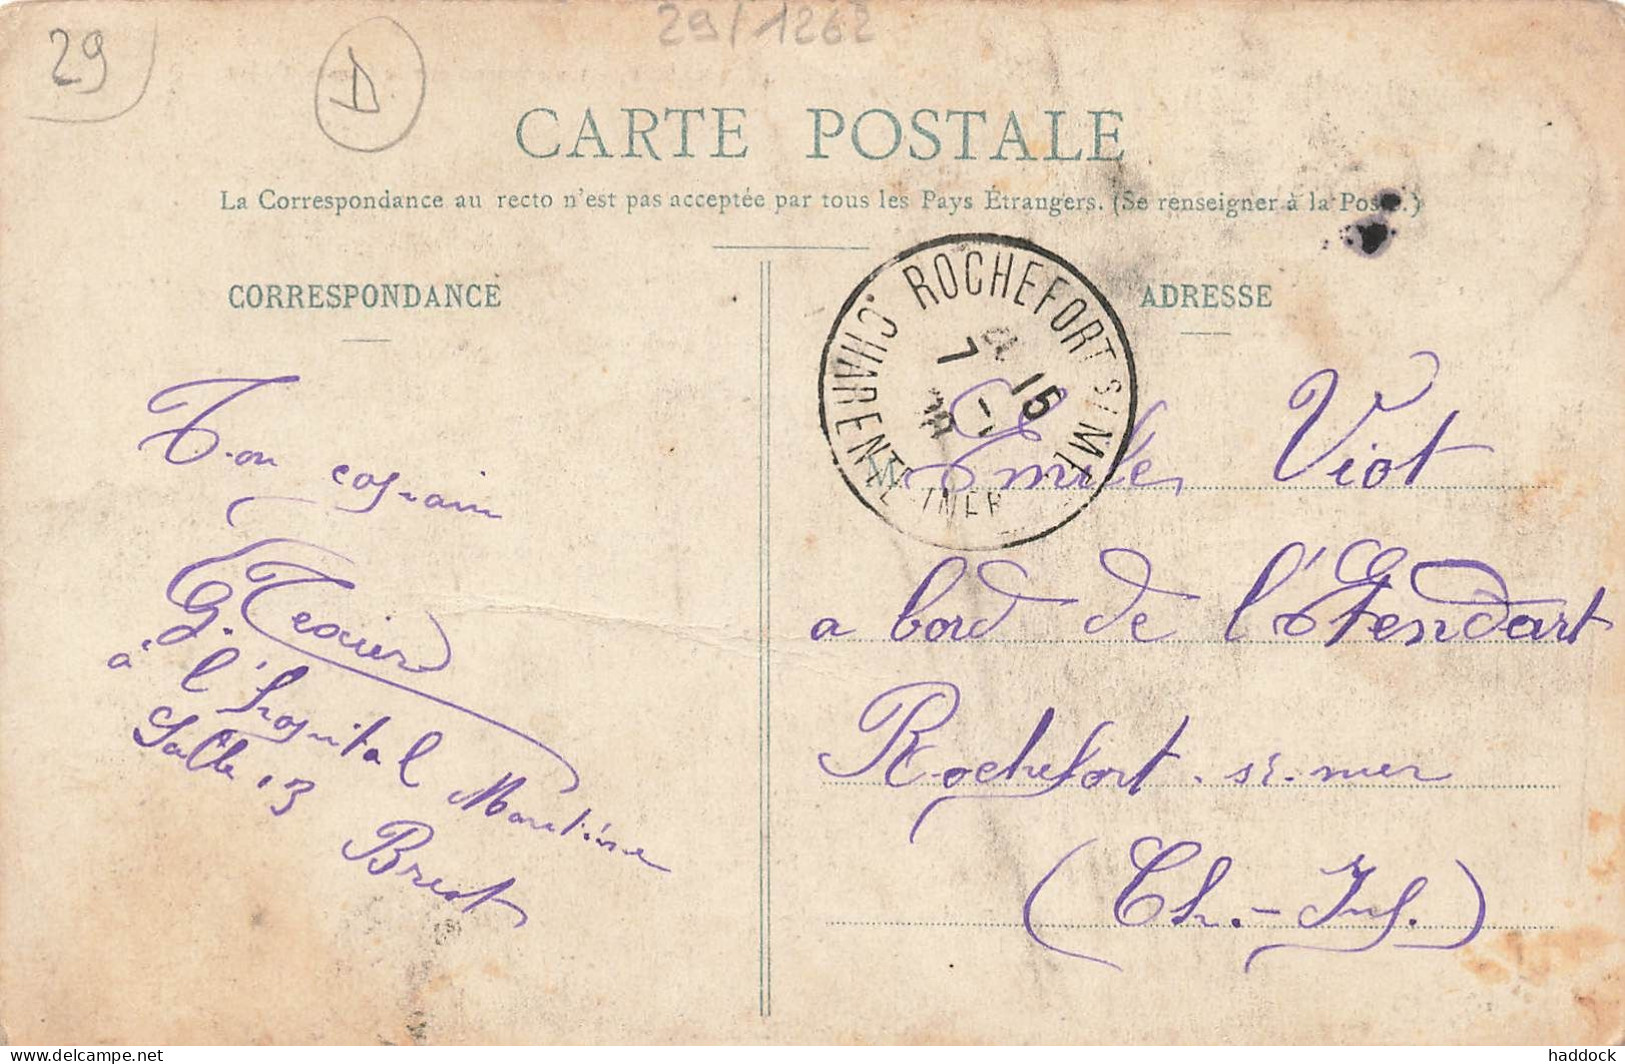 29
D
29/1262
CARTE POSTALE
La Correspondance au recto n'est pas acceptée par tous les Pays Étrangers. (Se renseigner à la Poste.)
CORRESPONDANCE
Ton copain
G. Texier
à l'hopital Maritime
Salle 13
Brest
ADRESSE
ROCHEFORT S/ MER
CHARENTE INFRE
7 - 1
15
M Emile Viot
a bord de l'Etendart
Rochefort-sr-mer
(Ch.-Inf.)
delcampe.net
haddock